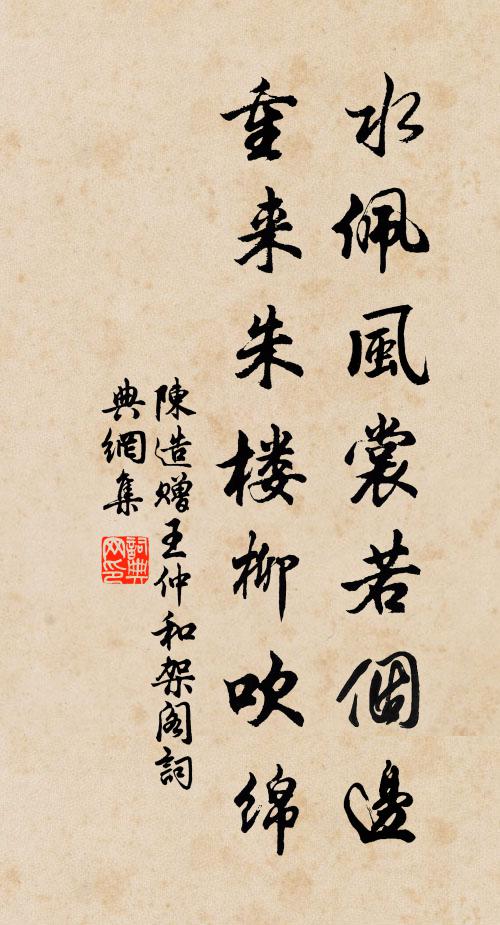 水佩風裳若個邊
重来朱楼柳吹绵
陳造赠王仲和架阁詞
典網集
詞典网印